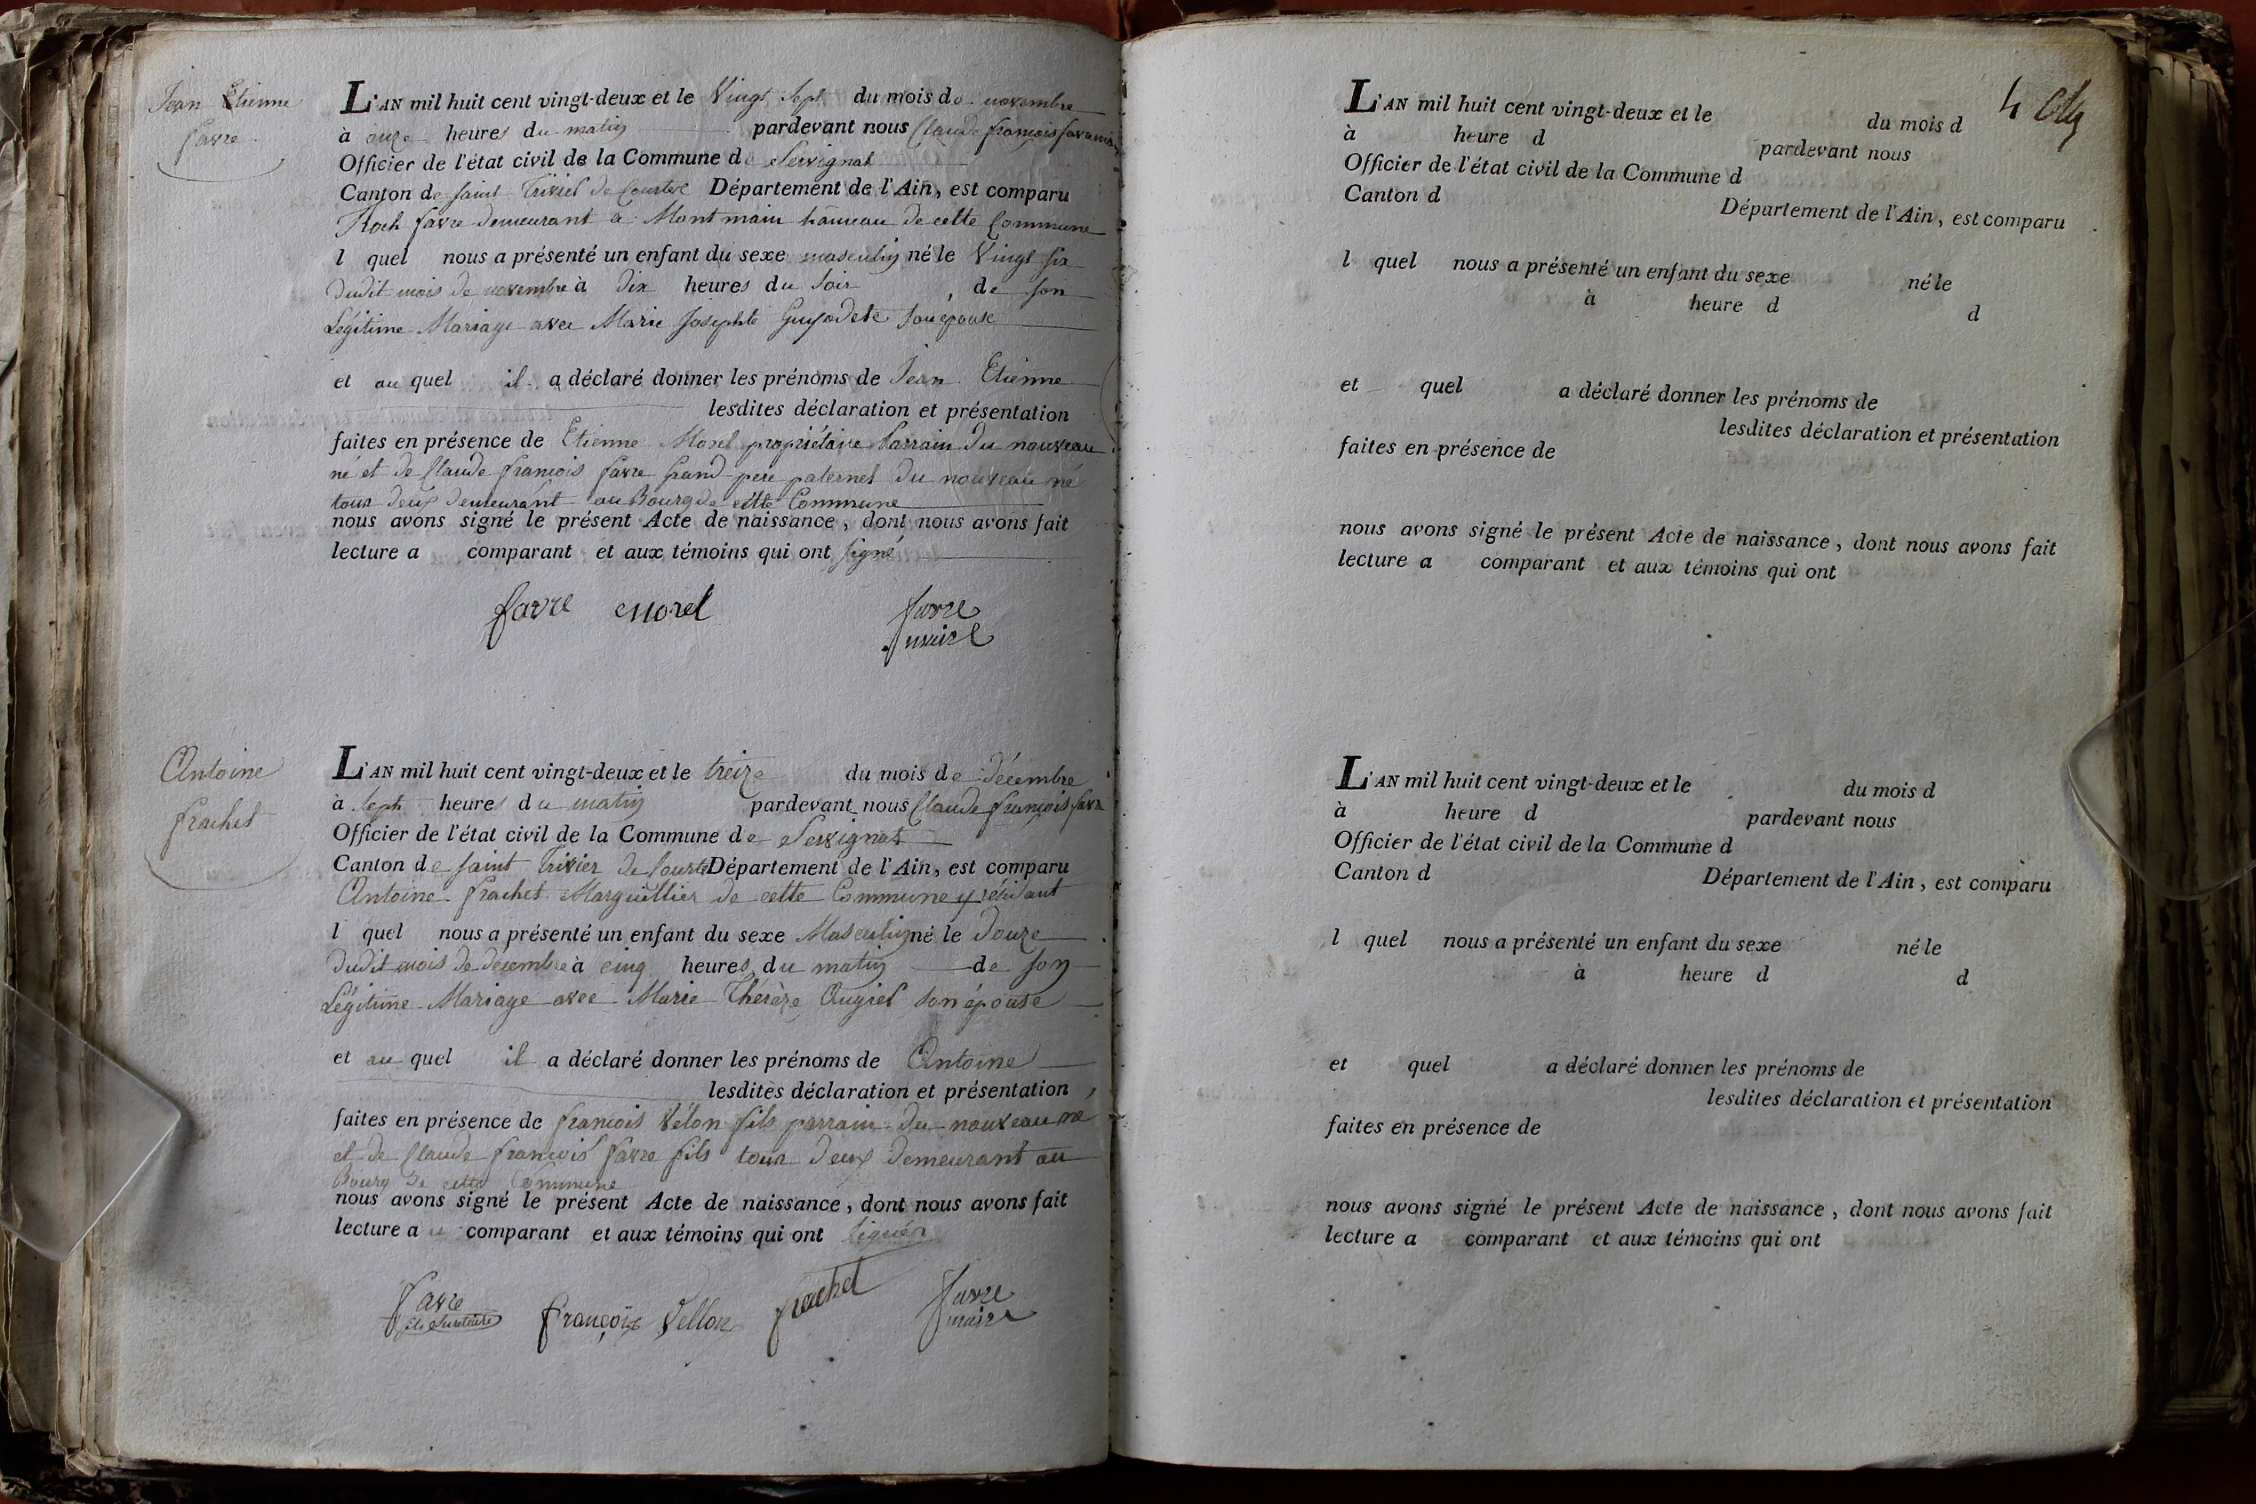 Jean Etienne
favre
L'AN mil huit cent vingt-deux et le Vingt sept du mois de novembre
à onze heures du matin pardevant nous Claude françois favre maire
Officier de l'état civil de la Commune de Servignat
Canton de saint Trivier de Courtes Département de l'Ain, est comparu
Roch favre demeurant à Montmain hameau de cette Commune
l quel nous a présenté un enfant du sexe masculin né le Vingt six
dudit mois de novembre à dix heures du soir, de son
Légitime Mariage avec Marie Josephte son épouse
et au quel il a déclaré donner les prénoms de Jean Etienne
lesdites déclaration et présentation
faites en présence de Etienne Morel propriétaire Parrain du nouveau
né et de Claude françois favre Grand pere paternel du nouveau né
tous deux demeurant au Bourg de cette Commune
nous avons signé le présent Acte de naissance, dont nous avons fait
lecture a comparant et aux témoins qui ont signé
favre Morel favre
maire
Antoine
frachet
L'AN mil huit cent vingt-deux et le treize du mois de décembre
à sept heures du matin pardevant nous Claude françois favre
Officier de l'état civil de la Commune de Servignat
Canton de saint Trivier de Courtes Département de l'Ain, est comparu
Antoine frachet Marguillier de cette Commune y résidant
l quel nous a présenté un enfant du sexe Masculin né le douze
dudit mois de décembre à cinq heures du matin de son
Légitime Mariage avec Marie Thérèze Augier son épouse
et au quel il a déclaré donner les prénoms de Antoine
lesdites déclaration et présentation
faites en présence de françois Vélon fils parrain du nouveau né
et de Claude françois favre fils tous deux demeurant au
Bourg de cette Commune
nous avons signé le présent Acte de naissance, dont nous avons fait
lecture au comparant et aux témoins qui ont signés
favre françois Vellon frachet favre
fils Secretaire maire
4
L'AN mil huit cent vingt-deux et le du mois d
à heure d pardevant nous
Officier de l'état civil de la Commune d
Canton d Département de l'Ain, est comparu
l quel nous a présenté un enfant du sexe né le
à heure d d
et quel a déclaré donner les prénoms de
lesdites déclaration et présentation
faites en présence de
nous avons signé le présent Acte de naissance, dont nous avons fait
lecture a comparant et aux témoins qui ont
L'AN mil huit cent vingt-deux et le du mois d
à heure d pardevant nous
Officier de l'état civil de la Commune d
Canton d Département de l'Ain, est comparu
l quel nous a présenté un enfant du sexe né le
à heure d d
et quel a déclaré donner les prénoms de
lesdites déclaration et présentation
faites en présence de
nous avons signé le présent Acte de naissance, dont nous avons fait
lecture a comparant et aux témoins qui ont